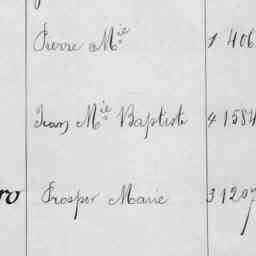 Pierre M.ie 1 406
Jean M.ie Baptiste 4 1584
ro Prosper Marie 3 1207